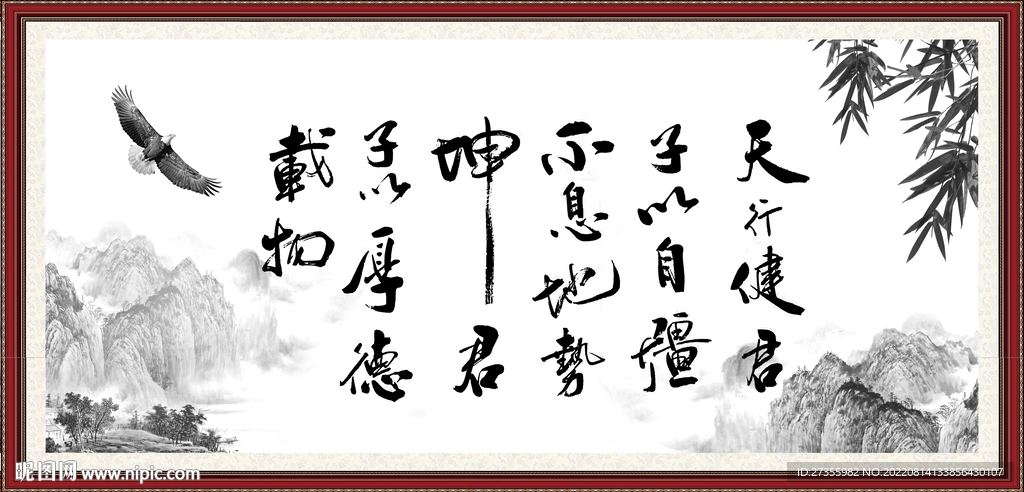 天行健君
子以自彊
不息地勢
坤君
子以厚德
載物
昵图网 www.nipic.com
ID:27355982 NO:20220814133856430107